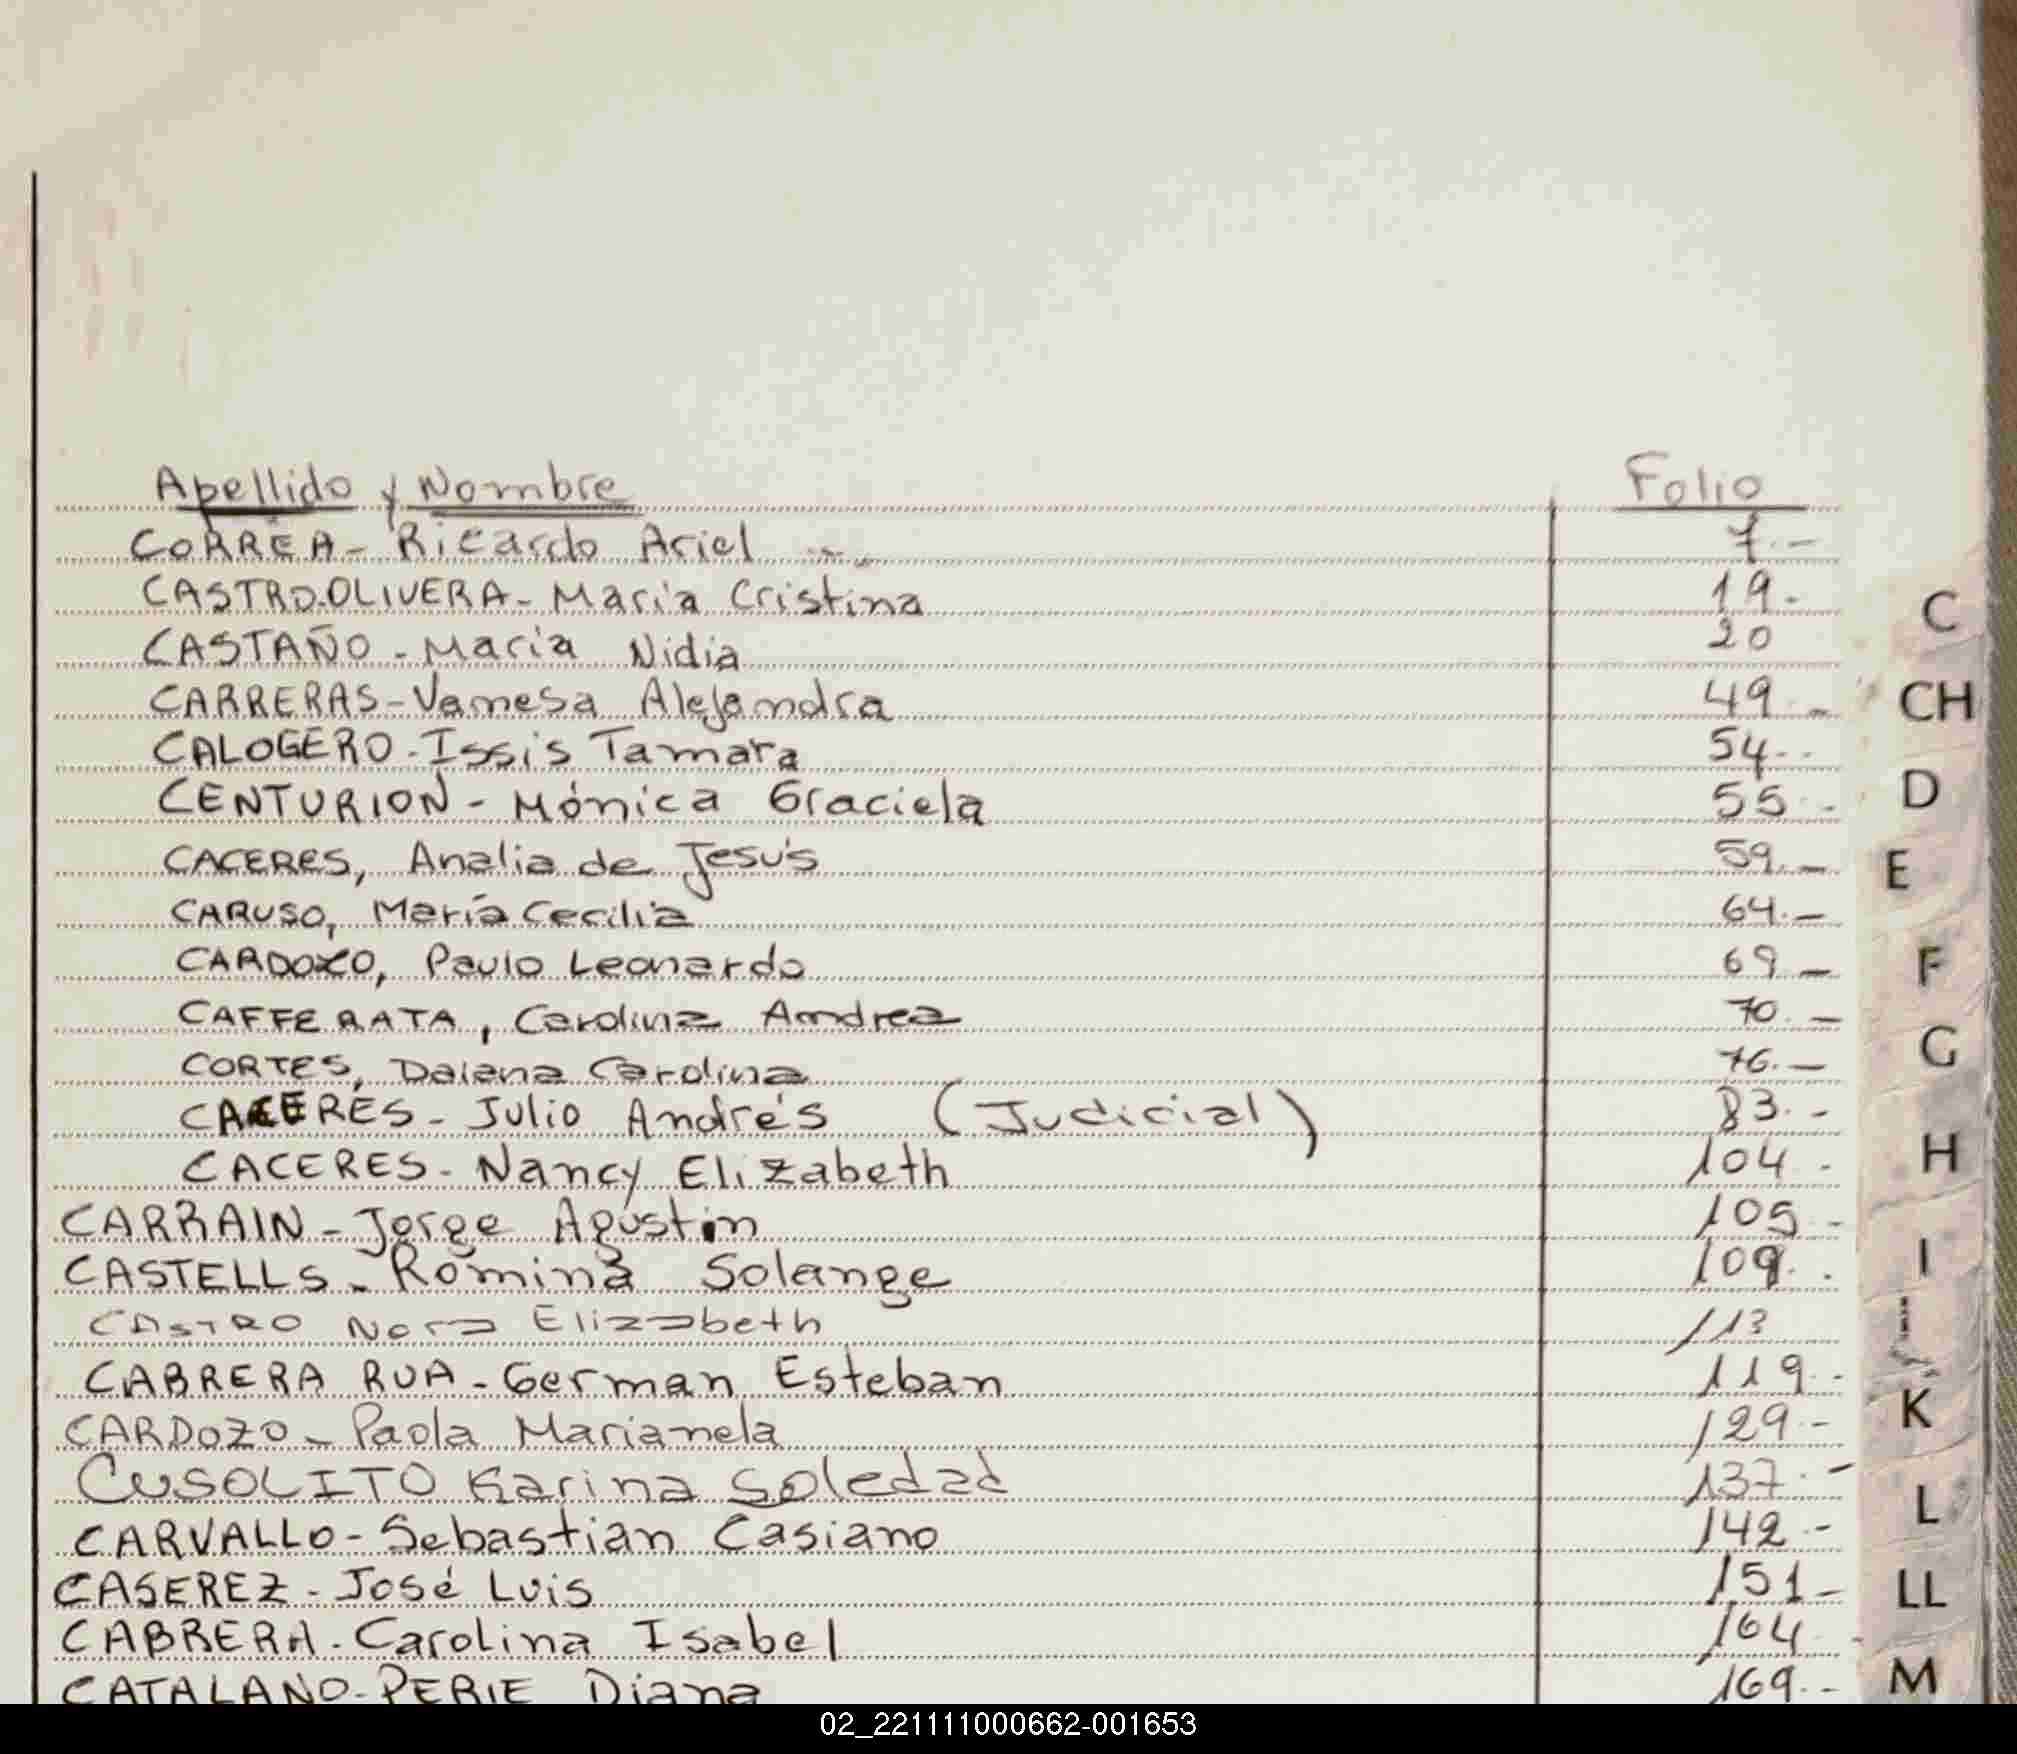 Apellido y Nombre Folio
CORREA - Ricardo Ariel 7.-
CASTRO-OLIVERA - María Cristina 19.-
CASTAÑO - María Nidia 20
CARRERAS - Vanesa Alejandra 49.-
CALOGERO - Issis Tamara 54.-
CENTURION - Mónica Graciela 55.-
CACERES, Analia de Jesús 59.-
CARUSO, María Cecilia 64.-
CARDOZO, Paulo Leonardo 69.-
CAFFERATA, Carolina Andrea 70.-
CORTES, Daiana Carolina 76.-
CACERES - Julio Andrés (Judicial) 83.-
CACERES - Nancy Elizabeth 104.
CARRAIN - Jorge Agustin 105-
CASTELLS - Romina Solange 109..
CASTRO Nora Elizabeth 113
CABRERA RUA - German Esteban 119.-
CARDOZO - Paola Marianela 129.-
CUSOLITO Karina Soledad 137.-
CARVALLO - Sebastian Casiano 142.-
CASEREZ - José Luis 151-
CABRERA - Carolina Isabel 164
CATALANO - PERIE Diana 169.-
C
CH
D
E
F
G
H
I
K
L
LL
M
02_221111000662-001653